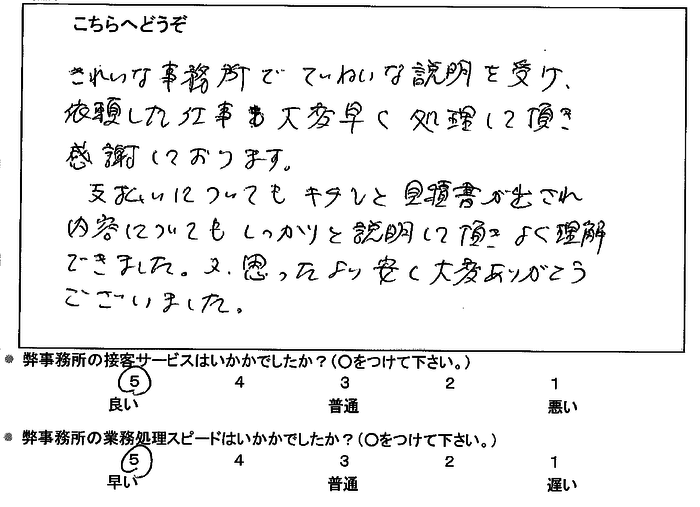 こちらへどうぞ
きれいな事務所でていねいな説明を受け、
依頼した仕事も大変早く処理して頂き
感謝しております。
支払いについてもキチンと見積書が出され
内容についてもしっかりと説明して頂きよく理解
できました。又、思ったより安く大変ありがとう
ございました。
● 弊事務所の接客サービスはいかかでしたか？（○をつけて下さい。）
5 4 3 2 1
良い 普通 悪い
● 弊事務所の業務処理スピードはいかかでしたか？（○をつけて下さい。）
5 4 3 2 1
早い 普通 遅い